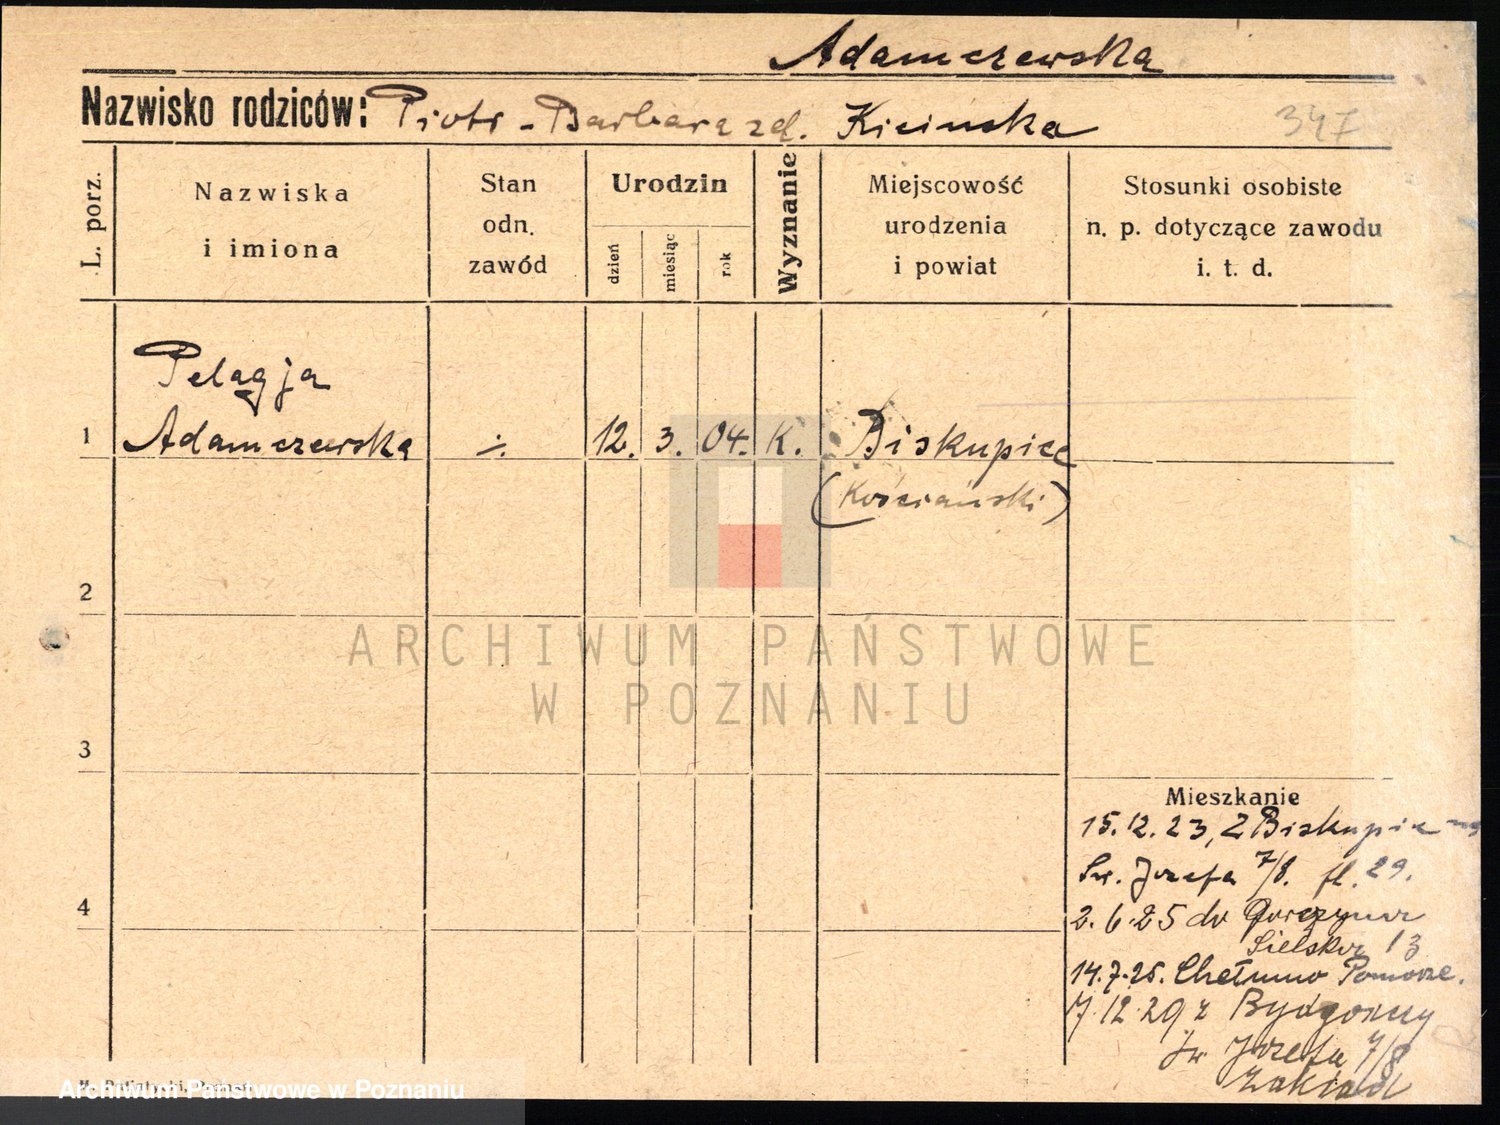 Adamczewska
Nazwisko rodziców: Piotr - Barbara zd. Kicińska
347
L. porz.
Nazwiska
i imiona
Stan
odn.
zawód
Urodzin
dzień
miesiąc
rok
Wyznanie
Miejscowość
urodzenia
i powiat
Stosunki osobiste
n. p. dotyczące zawodu
i. t. d.
Pelagja
1 Adamczewska ·/. 12. 3. 04. K. Biskupice
(Kościański)
2
ARCHIWUM PAŃSTWOWE
W POZNANIU
3
Mieszkanie
15.12.23, Z Biskupic na
Św. Józefa 7/8. fl. 29.
4
2.6.25 do Gorczyna
Sielska 13
14.7.25. Chełmno Pomorze.
7.12.29 z Bydgoszczy
Św Józefa 7/8
Zakład
Archiwum Państwowe w Poznaniu